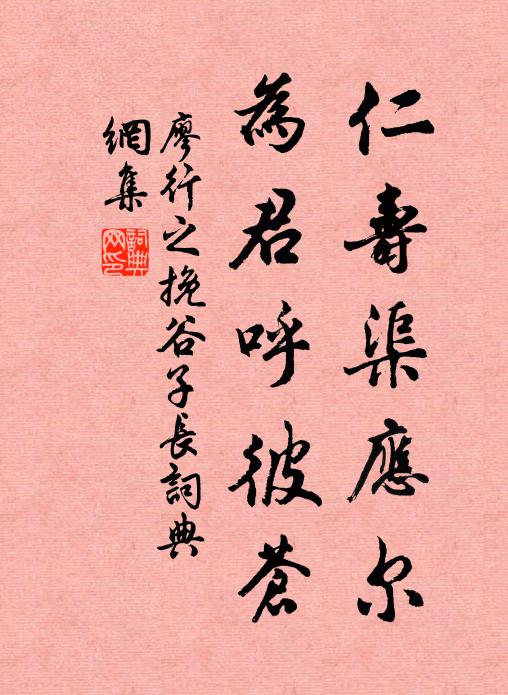 仁壽渠應尔
為君呼彼蒼
廖行之挽谷子長詞典
網集
詞典網印